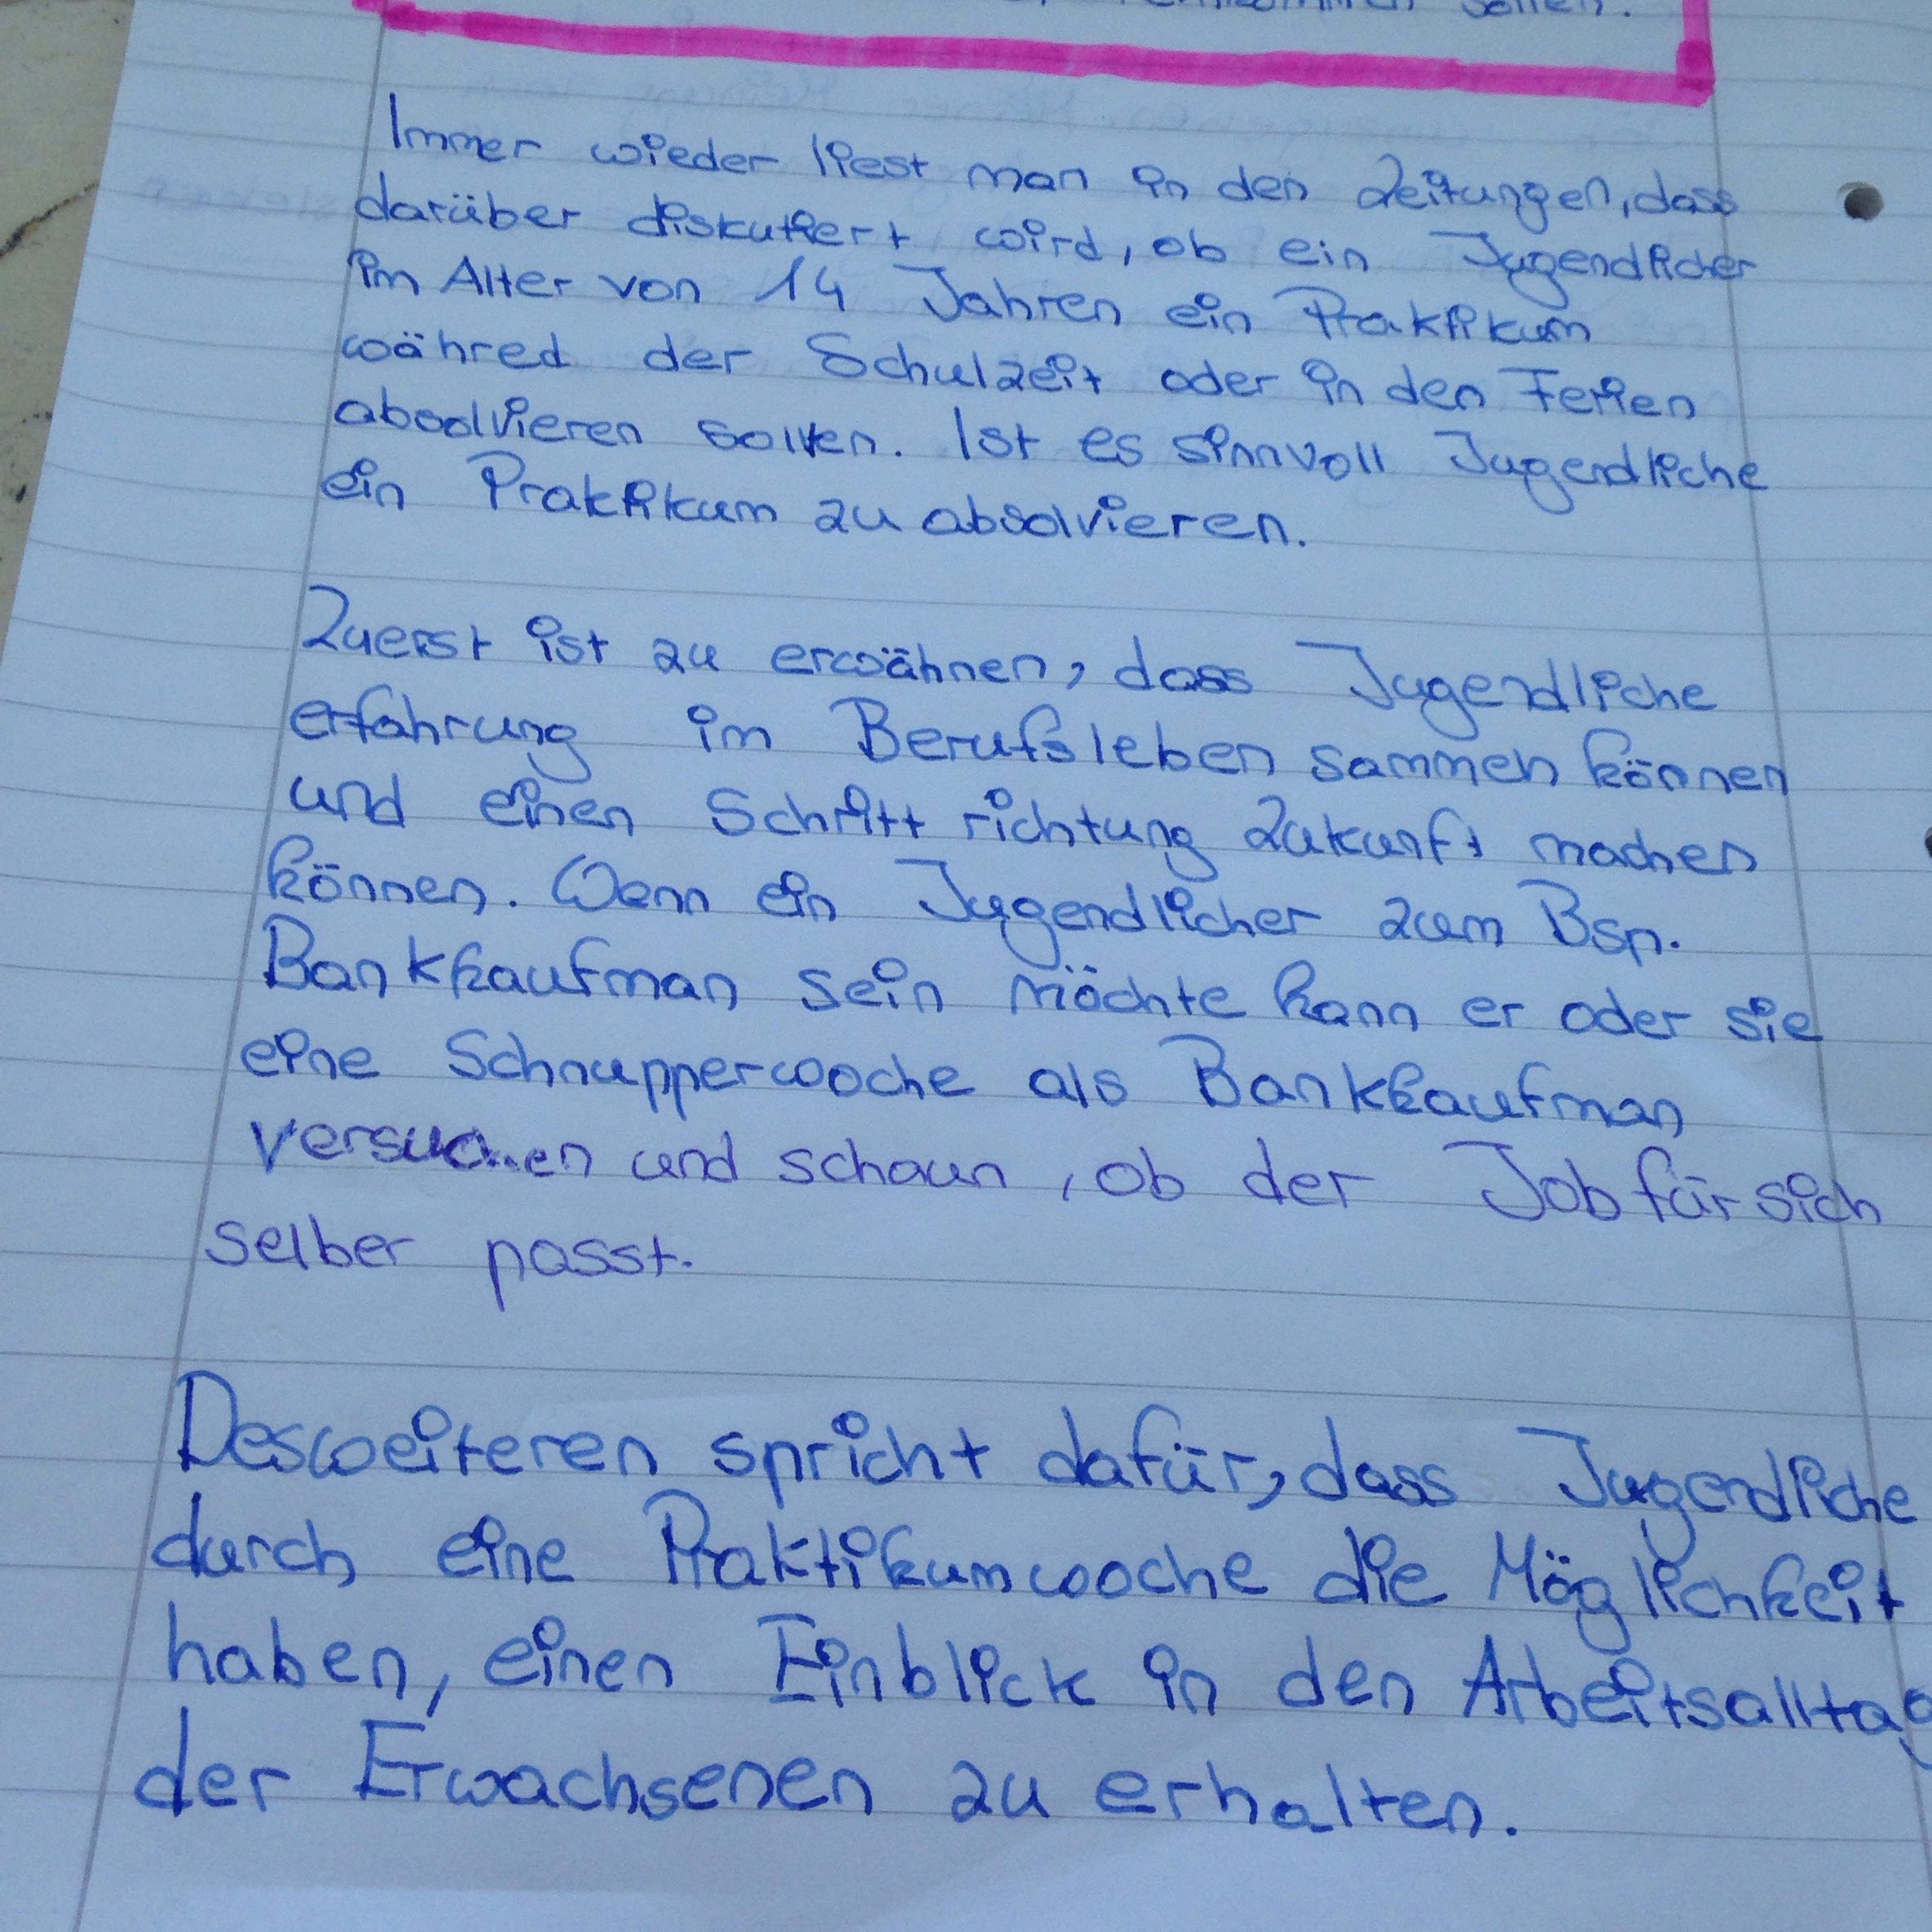 sollen.
Immer wieder liest man in den Zeitungen, dass
darüber diskutiert wird, ob ein Jugendlicher
im Alter von 14 Jahren ein Praktikum
währed der Schulzeit oder in den Ferien
absolvieren sollen. Ist es sinnvoll Jugendliche
ein Praktikum zu absolvieren.
Zuerst ist zu erwähnen, dass Jugendliche
erfahrung im Berufsleben sammeln können
und einen Schritt richtung Zukunft machen
können. Wenn ein Jugendlicher zum Bsp.
Bankkaufman sein möchte kann er oder sie
eine Schnupperwoche als Bankkaufman
versuchen und schaun, ob der Job für sich
selber passt.
Desweiteren spricht dafür, dass Jugendliche
durch eine Praktikumwoche die Möglichkeit
haben, einen Einblick in den Arbeitsalltag
der Erwachsenen zu erhalten.